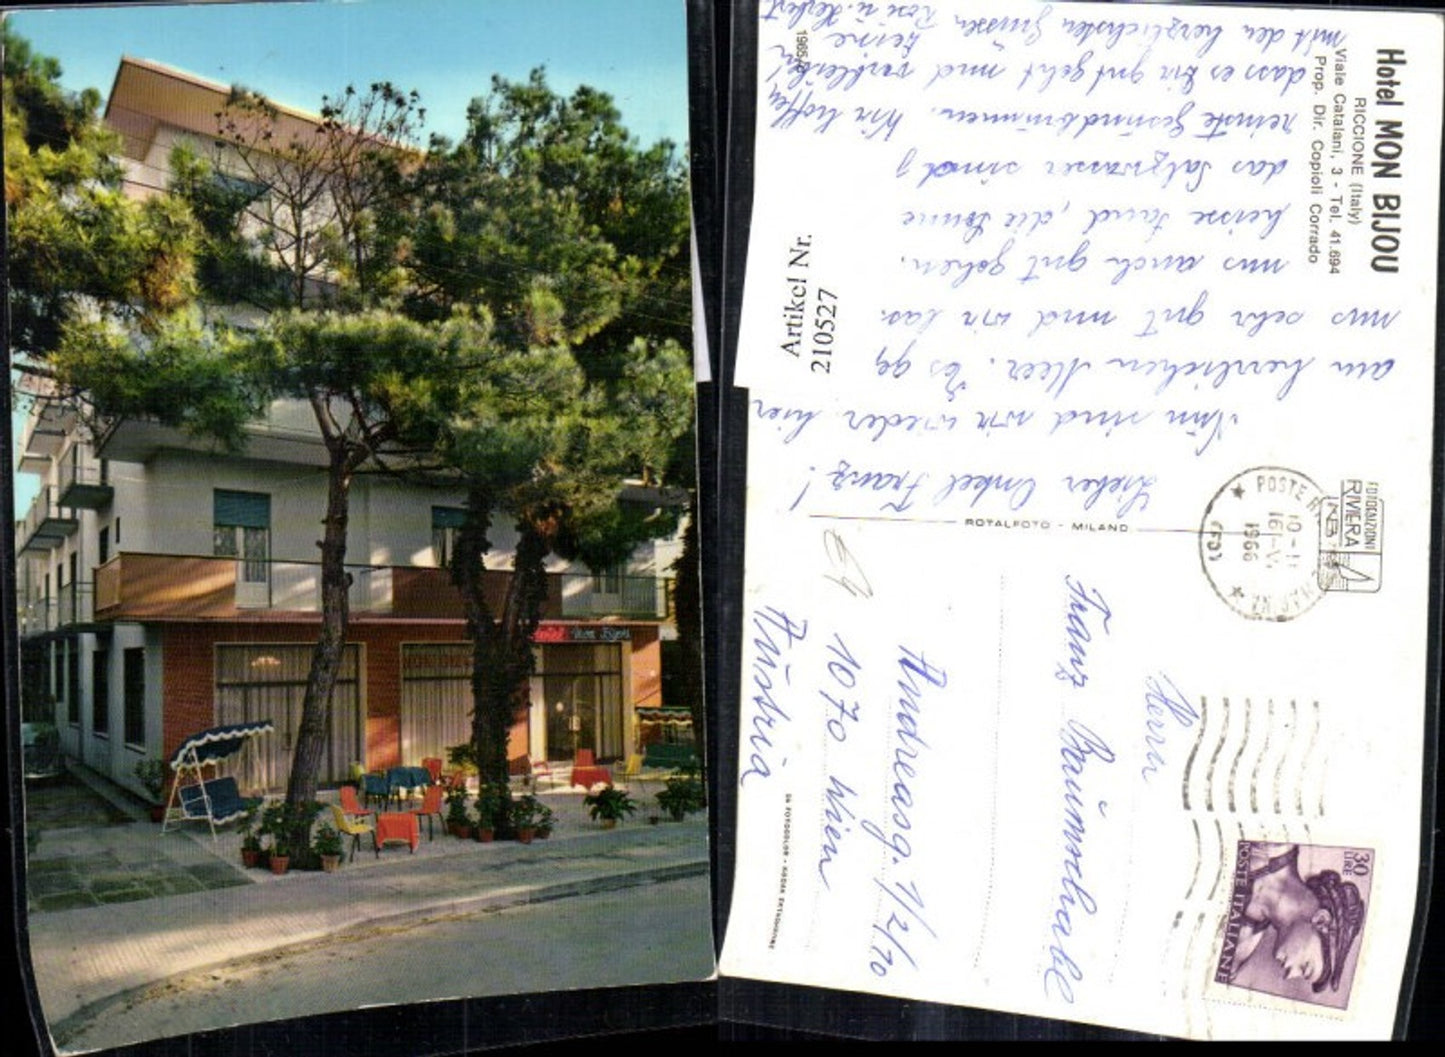 Hotel Mon Bijou
Hotel MON BIJOU
RICCIONE (Italy)
Viale Catalani, 3 - Tel. 41.694
Prop. Dir. Copioli Corrado
Lieber Onkel Franz!
Nun sind wir wieder hier
am herrlichen Meer. Es gg
uns sehr gut und wir las.
uns auch gut gehen.
heisse Sand, die Sonne
das Salzwasser sind j
reinste Gesundbrunnen. Wir hoffen,
dass es Dir gut geht und verbleiben
mit den herzlichsten Grüssen Deine
Rosi u. Herbert
1965
Artikel Nr.
210527
ROTALFOTO - MILANO
FOTOEDIZIONI
RIVIERA
POSTE
1966
30
LIRE
POSTE ITALIANE
Herrn
Franz Bäumhakl
Andreasg. 1/2/70
1070 Wien
Austria
DA FOTOCOLOR - KODAK EKTACHROME